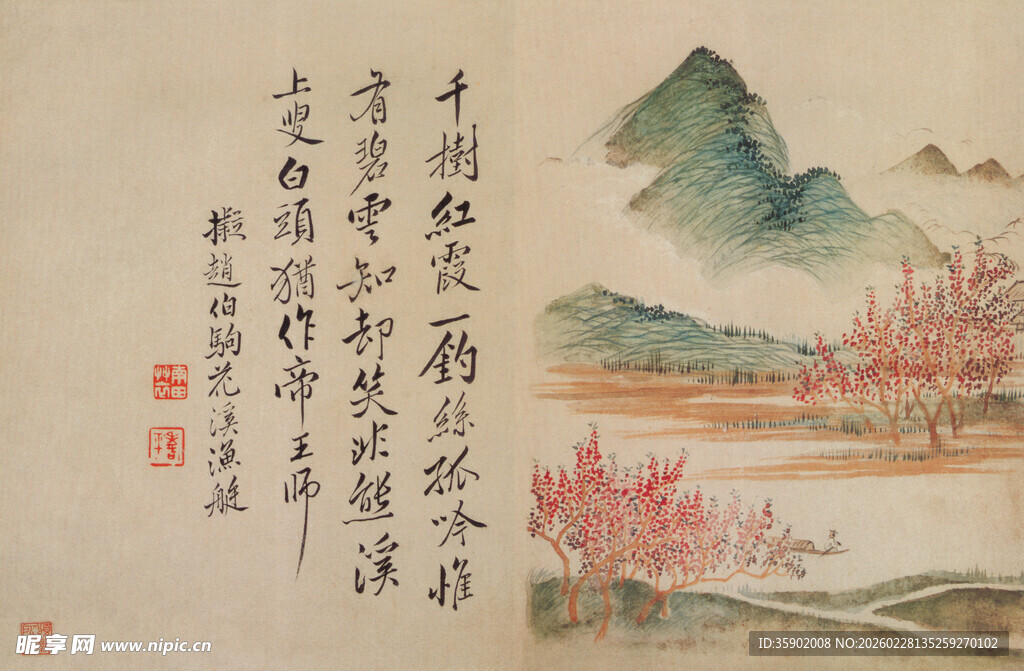 千樹紅霞一釣絲孤吟惟
有碧雲知却笑非熊溪
上叟白頭猶作帝王師
擬趙伯駒花溪漁艇
昵享网 www.nipic.cn
ID:35902008 NO:20260228135259270102